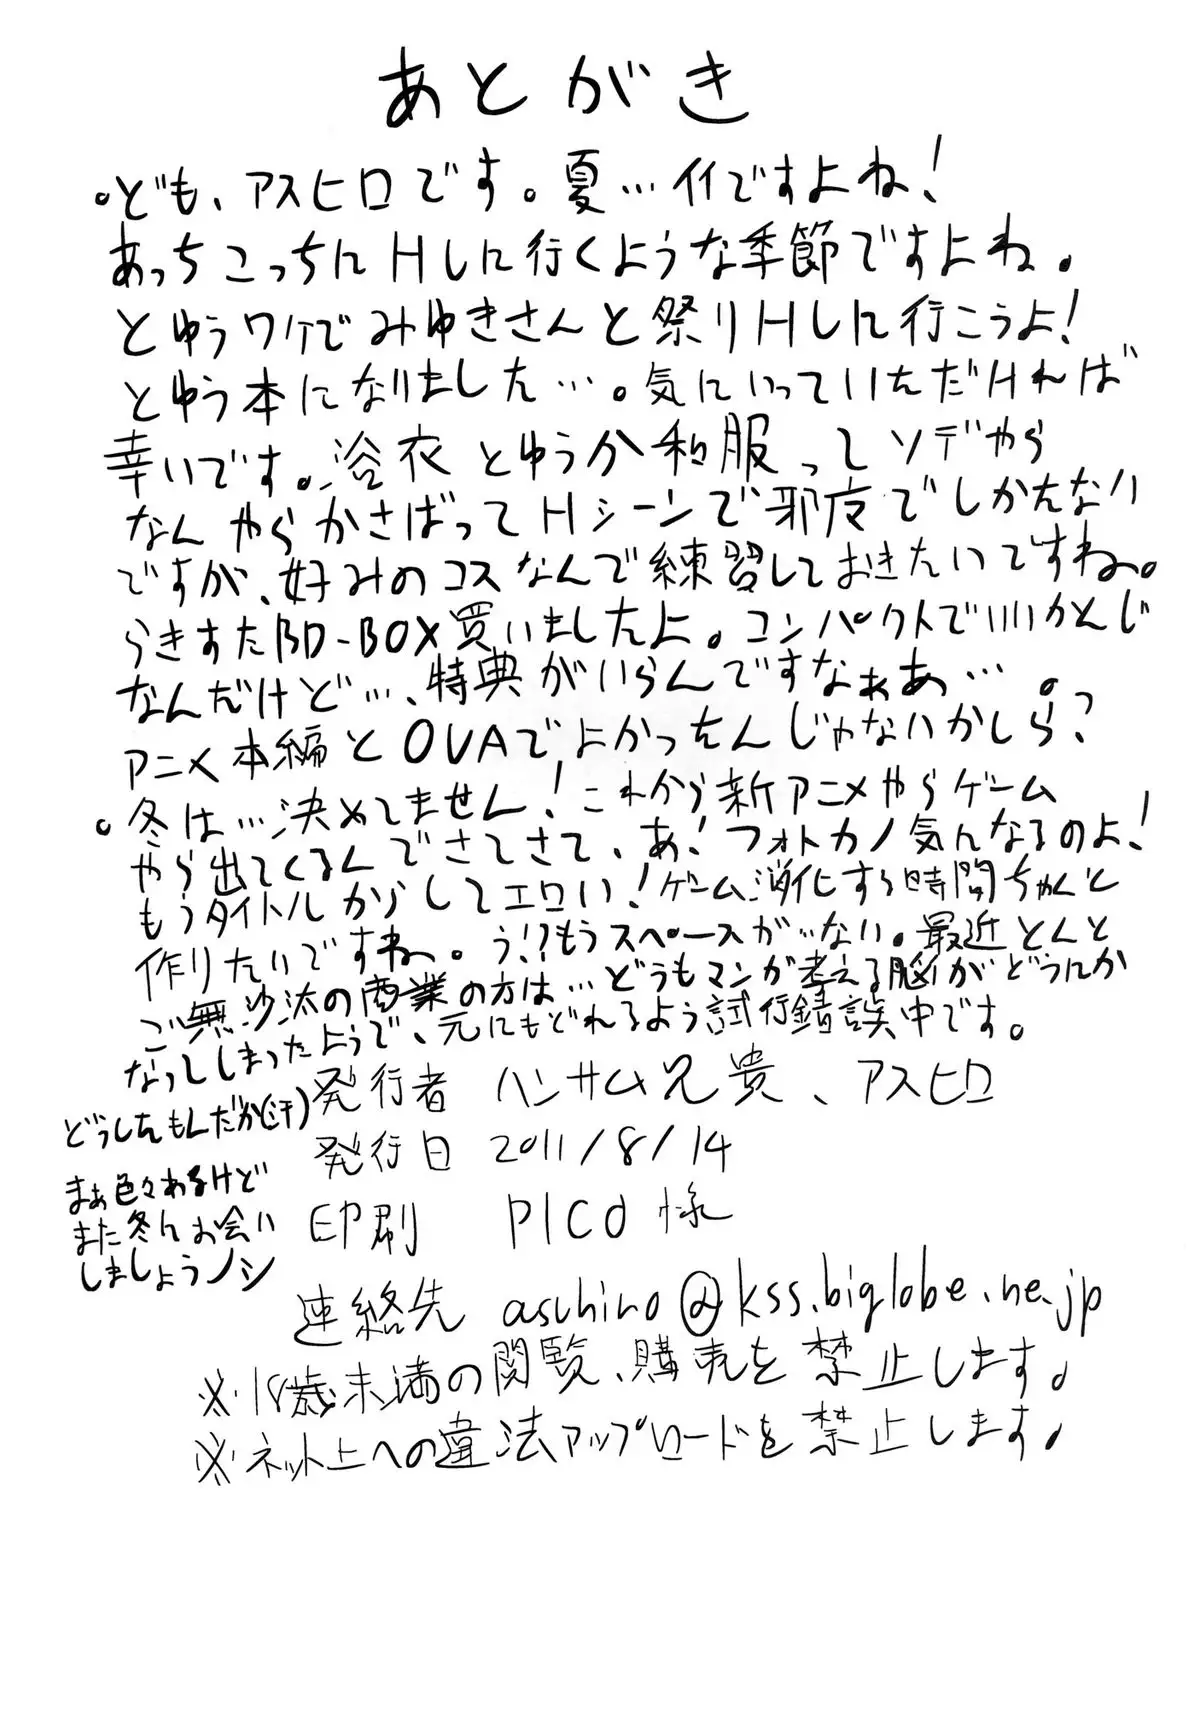 あとがき
。ども、アスヒロです。夏…イイですよね！
あっちこっちにHしに行くような季節ですよね。
とゆうワケでみゆきさんと祭りHしに行こうよ！
とゆう本になりました…。気にいっていただければ
幸いです。浴衣とゆうか和服ってソデやら
なんやらかさばってHシーンで邪魔でしかたない
ですが、好みのコスなんで練習しておきたいですね。
らきすたBD-BOX買いましたよ。コンパクトでいいかんじ
なんだけど…、特典がいらんですなぁあ…。
アニメ本編とOVAでよかったんじゃないかしら？
。冬は…決めてません！これから新アニメやらゲーム
やら出てくるんでさてさて、あ！フォトカノ気んなるのよ！
もうタイトルからしてエロい！ゲーム消化する時間ちゃんと
作りたいですね。う!?もうスペースがない。最近とんと
ご無沙汰の商業の方は…どうもマンガ考える脳がどうにか
なってしまったようで、元にもどれるよう試行錯誤中です。
どうしたもんだか(汗)
まぁ色々あるけど
また冬にお会い
しましょうノシ
発行者 ハンサム兄貴、アスヒロ
発行日 2011/8/14
印刷 PICO様
連絡先 asuhiro@kss.biglobe.ne.jp
※18歳未満の閲覧、購売を禁止します。
※ネット上への違法アップロードを禁止します。